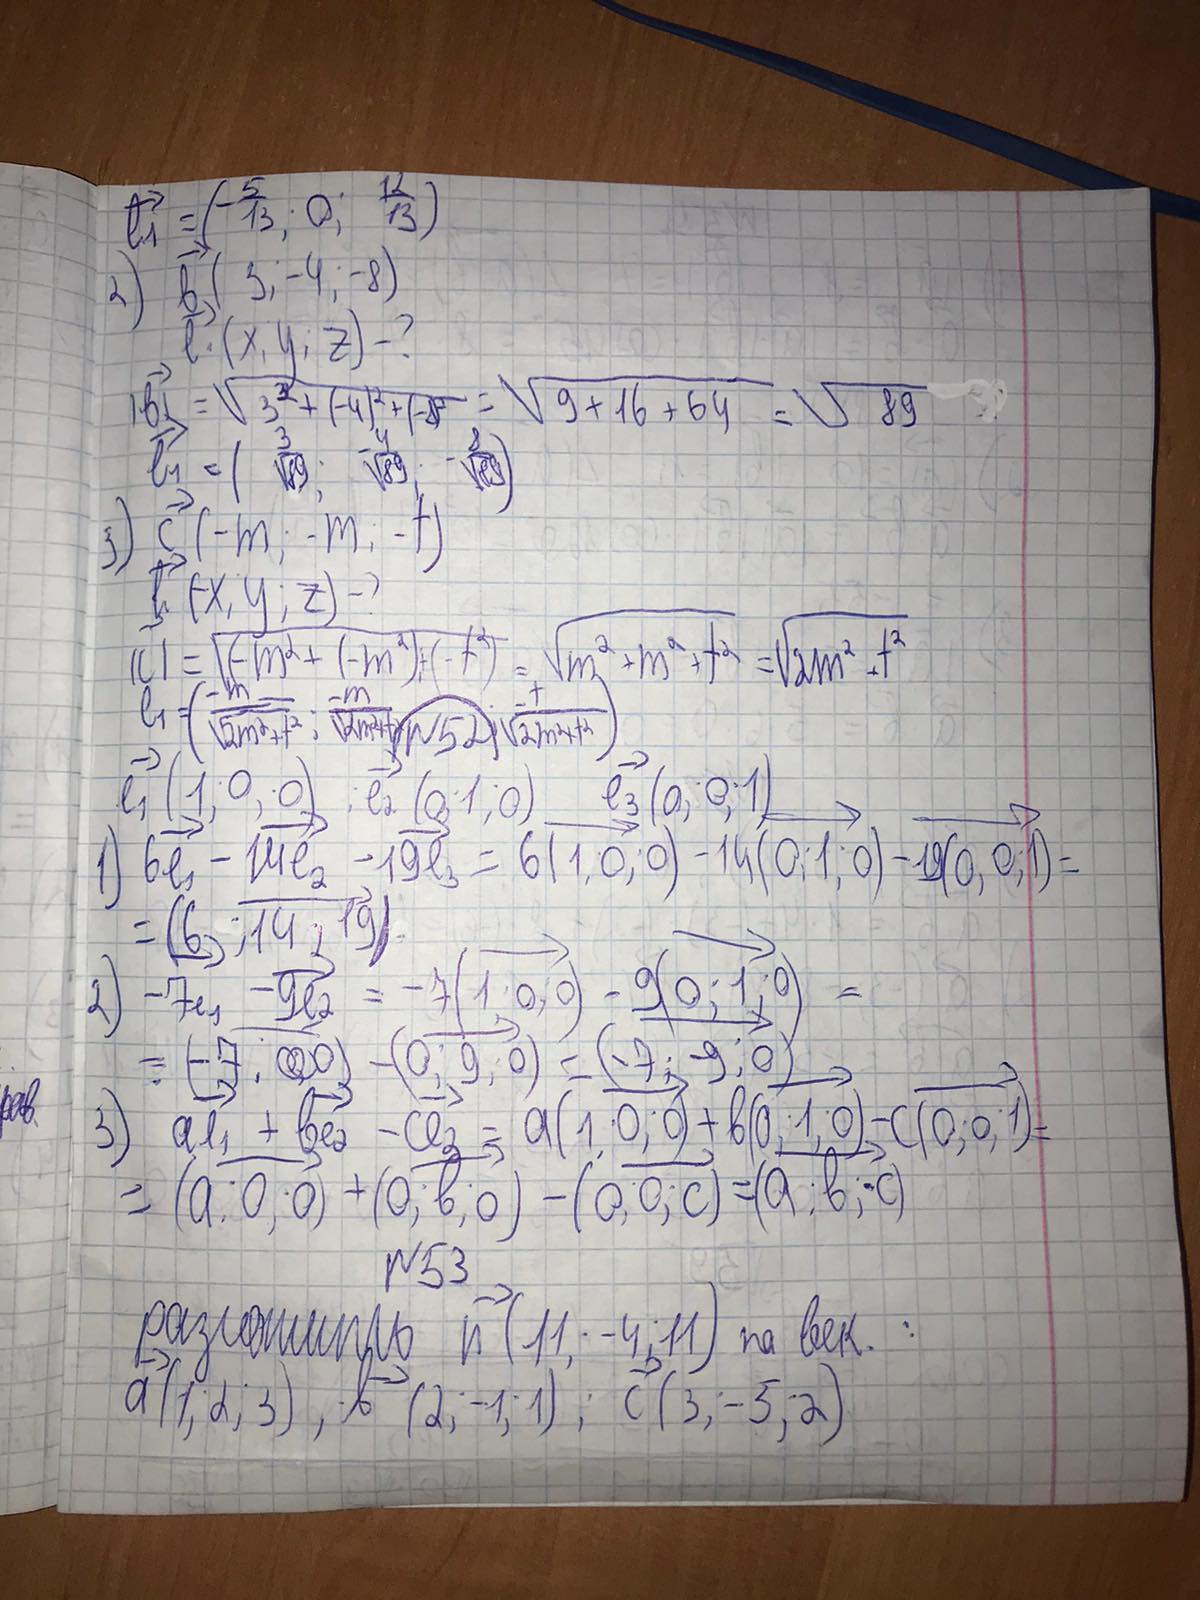 e₁ = (-5/13; 0; 12/13)
2) b (3; -4; -8)
e (x, y; z) - ?
|b| = √3² + (-4)² + (-8² = √9 + 16 + 64 = √89
e₁ = (3/√89; -4/√89; -8/√89)
3) c (-m; -m; -t)
(x, y; z) - ?
|c| = √(-m² + (-m²) + (-t²) = √m² + m² + t² = √2m² + t²
e₁ = (-m/√2m²+t²; -m/√2m²+t²; -t/√2m²+t²)
№52
e₁ (1; 0; 0) ; e₂ (0; 1; 0) e₃ (0; 0; 1)
1) 6e₁ - 14e₂ - 19e₃ = 6(1; 0; 0) - 14(0; 1; 0) - 19(0; 0; 1) =
= (6; 14; 19).
2) -7e₁ - 9e₂ = -7(1; 0; 0) - 9(0; 1; 0) =
= (-7; 0; 0) - (0; 9; 0) = (-7; -9; 0)
рав.
3) ae₁ + be₂ - ce₃ = a(1; 0; 0) + b(0; 1; 0) - c(0; 0; 1) =
= (a; 0; 0) + (0; b; 0) - (0; 0; c) = (a; b; -c)
№53
разложить n (11; -4; 11) по век. :
a (1; 2; 3), b (2; -1; 1); c (3; -5; 2)